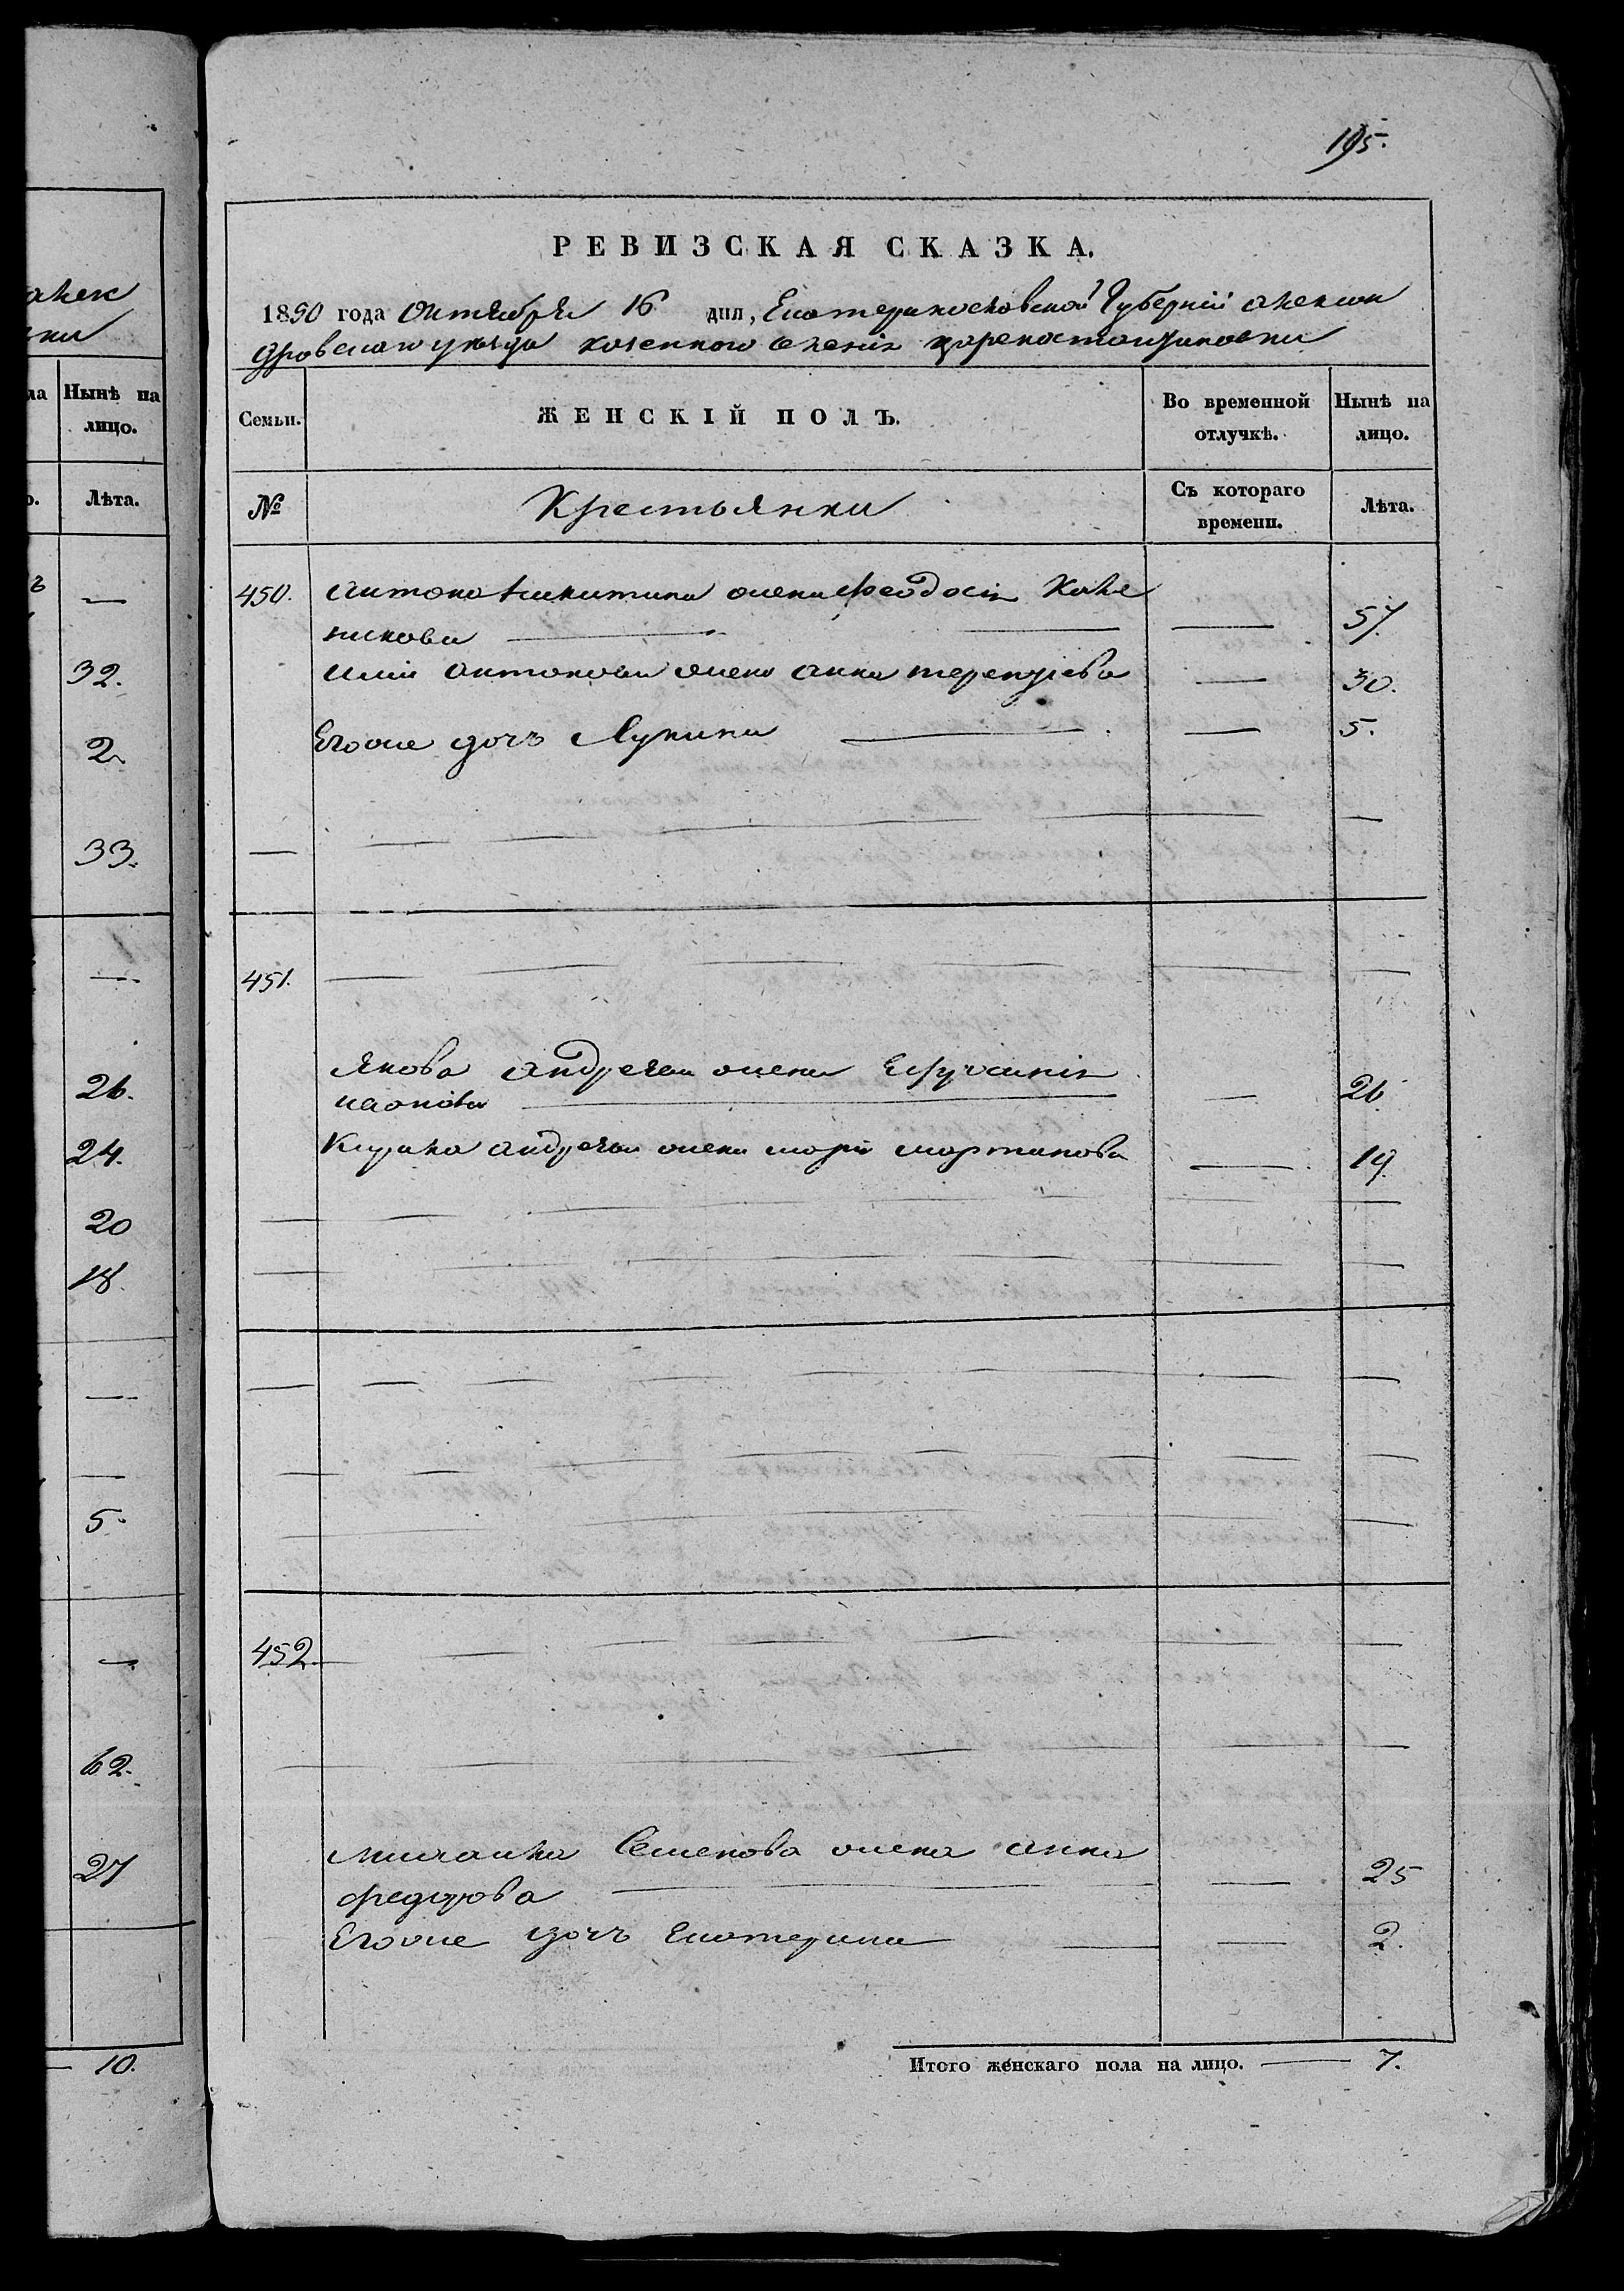 195.
РЕВИЗСКАЯ СКАЗКА.
1850 года Октября 16 дня, Екатеринославской Губерніи Алексан
дровскаго уезда казенного селенія Цареконстантиновки
алек
ки
Семьи.
ЖЕНСКІЙ ПОЛЪ.
Во временной отлучкѣ.
Нынѣ на лицо.
Нынѣ на лицо.
№
Крестьянки
Съ котораго времени.
Лѣта.
Лѣта.
450. Антона Никитина жена Феодосія
никова — — 57.
Антонова жена Анна Терентіева — 30.
Егоже дочь Лукина — — 5.
451.
Якова Андреева жена Ефросинія
— — 26
Андреева жена Марія Мартинова — 19.
452.
Михаила Семенова жена Анна
Федорова — — 25
Егоже дочь Екатерина — — 2.
Итого женскаго пола на лицо. — 7.
32.
2.
33.
26.
24.
20
18.
5.
62.
27
10.